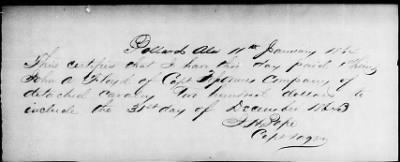 Pollard Ala 11th January 1864
This certifies that I have this day paid
John A. Floyd of Capt Company of
detached cavalry Two hundred dollars to
include the 31st day of December 1863
Pope
Capt